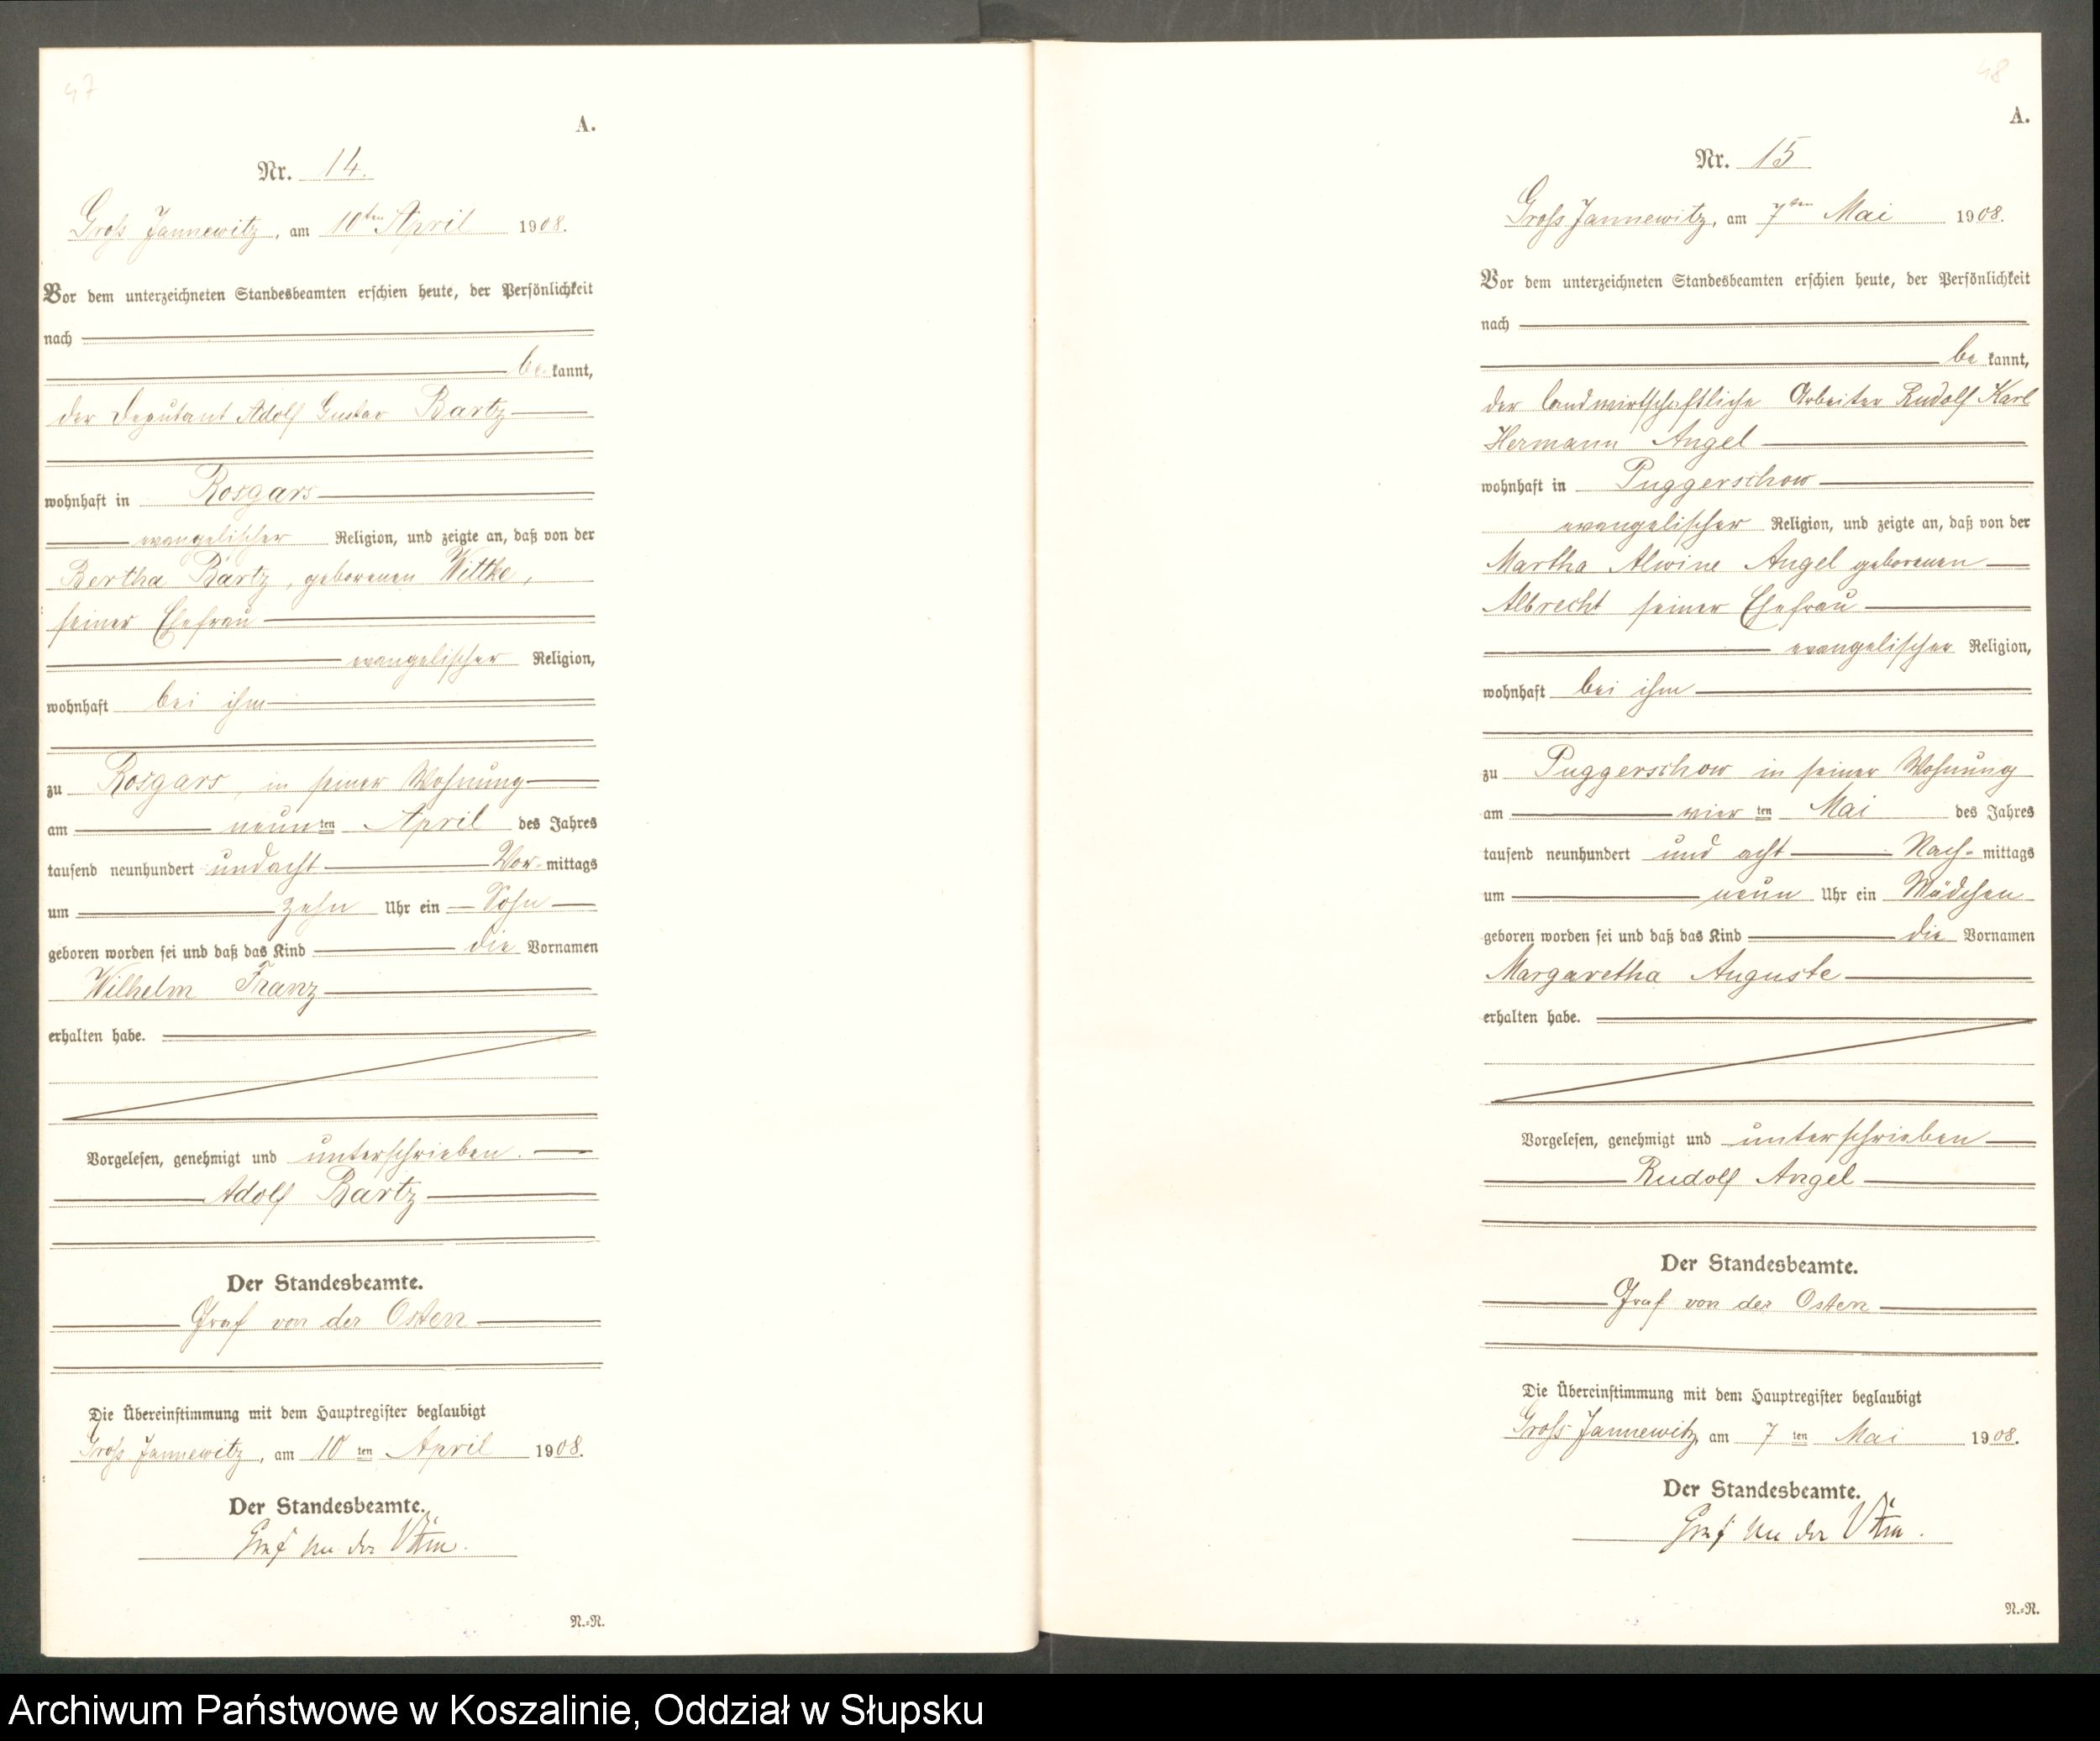 47
A.
Nr. 14.
Groß Jannewitz, am 10ten April 1908.
Vor dem unterzeichneten Standesbeamten erschien heute, der Persönlichkeit
nach
bekannt,
der Deputant Adolf Gustav Bartz
wohnhaft in Rosgars
evangelischer Religion, und zeigte an, daß von der
Bertha Bartz, geborenen Wittke,
seiner Ehefrau
evangelischer Religion,
wohnhaft bei ihm
zu Rosgars, in seiner Wohnung
am neunten April des Jahres
tausend neunhundert undacht Vor-mittags
um zehn Uhr ein Sohn
geboren worden sei und daß das Kind die Vornamen
Wilhelm Franz
erhalten habe.
Vorgelesen, genehmigt und unterschrieben.
Adolf Bartz
Der Standesbeamte.
Graf von der Osten
Die Übereinstimmung mit dem Hauptregister beglaubigt
Groß Jannewitz, am 10ten April 1908.
Der Standesbeamte.
Graf von der Osten.
N.=R.
48
A.
Nr. 15
Groß Jannewitz, am 7ten Mai 1908.
Vor dem unterzeichneten Standesbeamten erschien heute, der Persönlichkeit
nach
bekannt,
der landwirtschaftliche Arbeiter Rudolf Karl
Hermann Angel
wohnhaft in Puggerschow
evangelischer Religion, und zeigte an, daß von der
Martha Alwine Angel geborenen
Albrecht seiner Ehefrau
evangelischer Religion,
wohnhaft bei ihm
zu Puggerschow in seiner Wohnung
am vierten Mai des Jahres
tausend neunhundert und acht Nach-mittags
um neun Uhr ein Mädchen
geboren worden sei und daß das Kind die Vornamen
Margaretha Auguste
erhalten habe.
Vorgelesen, genehmigt und unterschrieben
Rudolf Angel
Der Standesbeamte.
Graf von der Osten
Die Übereinstimmung mit dem Hauptregister beglaubigt
Groß Jannewitz, am 7ten Mai 1908.
Der Standesbeamte.
Graf von der Osten.
N.=R.
Archiwum Państwowe w Koszalinie, Oddział w Słupsku